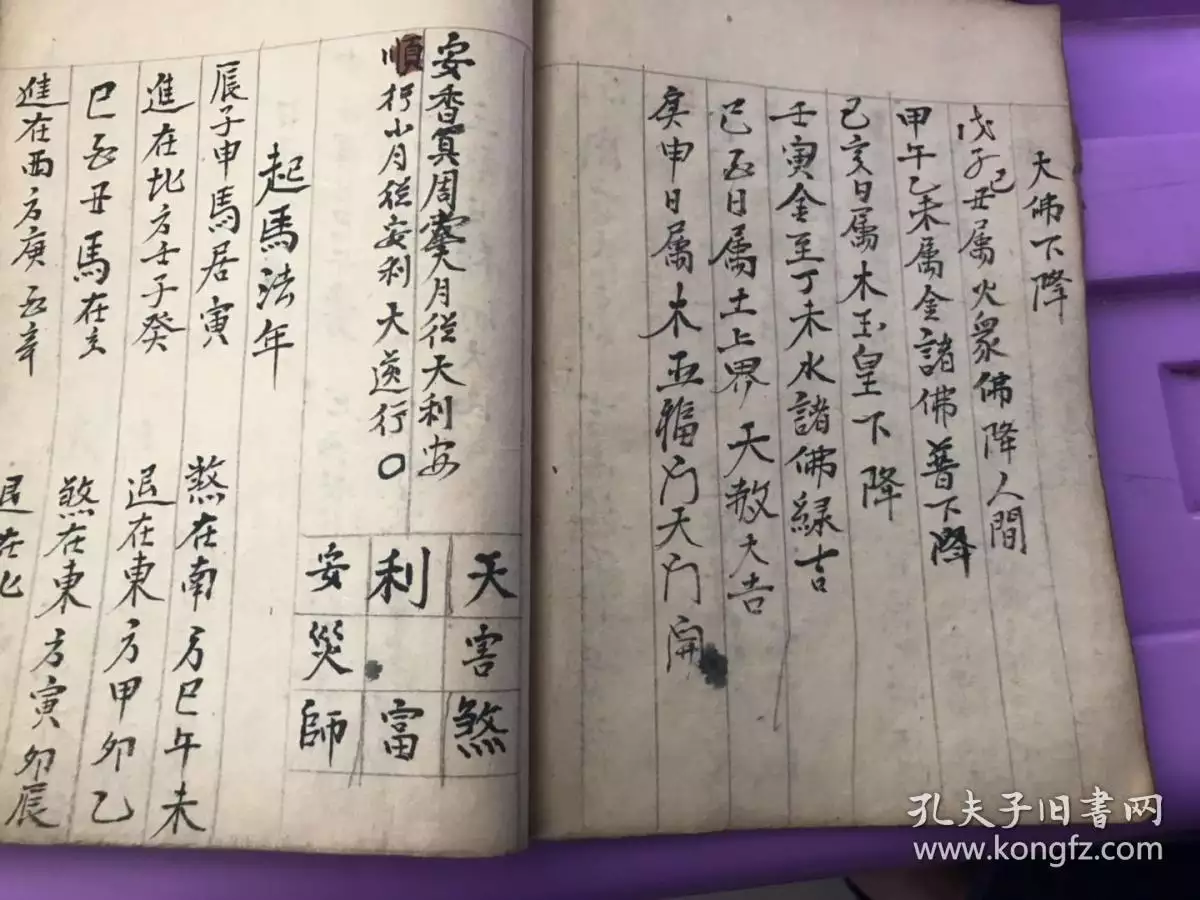 天佛下降
戊子己丑属火衆佛降人間
甲午乙未属金諸佛普下降
己亥日属木玉皇下降
壬寅金至丁未水諸佛緑吉
巳酉日属土上界天赦大吉
庚申日属木五福门天门開
安香箕周堂大月従天利安
順行小月従安利天逆行〇
天 利 安
害 災
煞 富 師
起馬法年
辰子申馬居寅 煞在南方巳午未
進在北方壬子癸 退在東方甲卯乙
巳酉丑馬在亥 煞在東方寅卯辰
進在西方庚酉辛 退在
孔夫子旧书网
www.kongfz.com